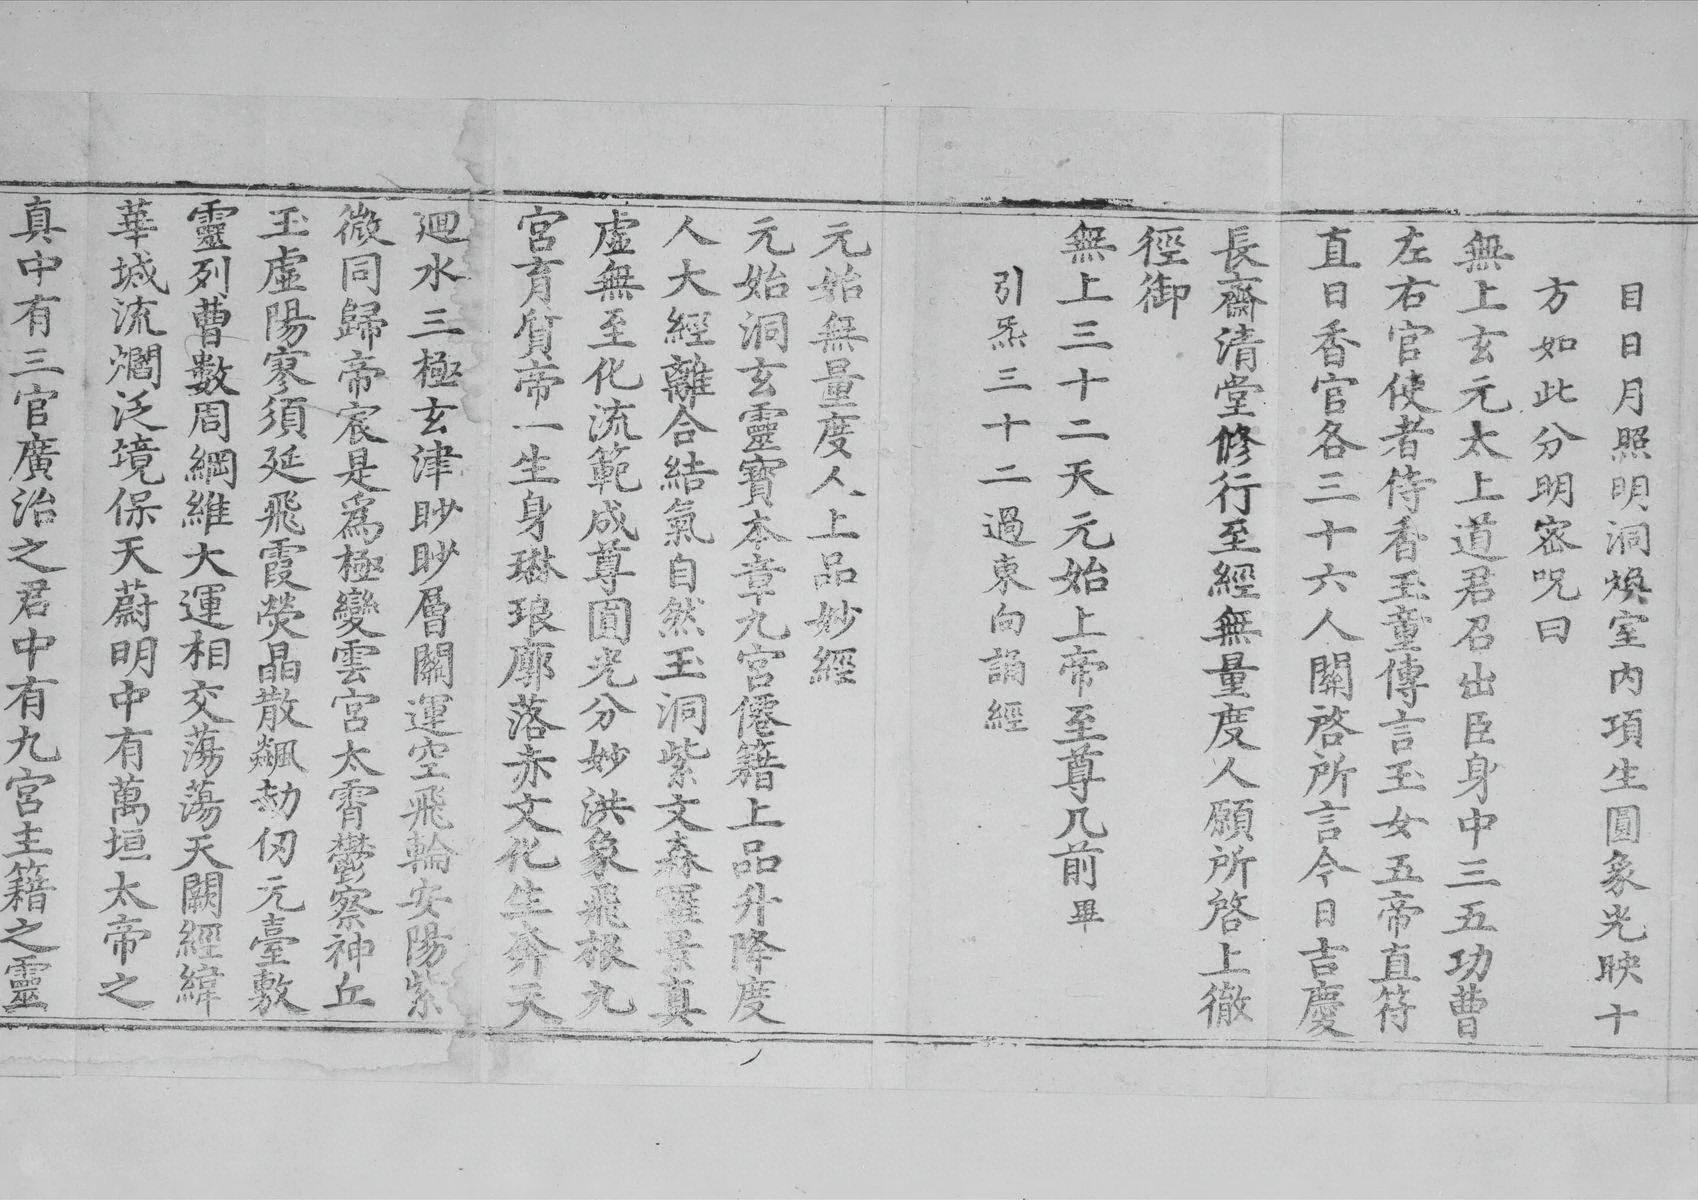 目日月照明洞煥室内項生圓象光映十
方如此分明密呪曰
無上玄元太上道君召出臣身中三五功曹
左右官使者侍香玉童傳言玉女五帝直符
直日香官各三十六人關啓所言今日吉慶
長齋清堂修行至經無量度人願所啓上徹
徑御
無上三十二天元始上帝至尊几前畢
引炁三十二過東向誦經
元始無量度人上品妙經
元始洞玄靈寶本章九宮僊籍上品升降度
人大經離合結氣自然玉洞紫文森羅景真
虛無至化流範成尊圓光分妙洪象飛根九
宮育質帝一生身琳琅廓落赤文化生奔天
迴水三極玄津眇眇層關運空飛輪安陽紫
微同歸帝宸是爲極變雲宮太霄鬱察神丘
玉虛陽寥須延飛霞熒晶散飆劫仞元臺敷
靈列曹數周綱維大運相交蕩蕩天闕經緯
華城流爛泛境保天蔚明中有萬垣太帝之
真中有三官廣治之君中有九宮主籍之靈